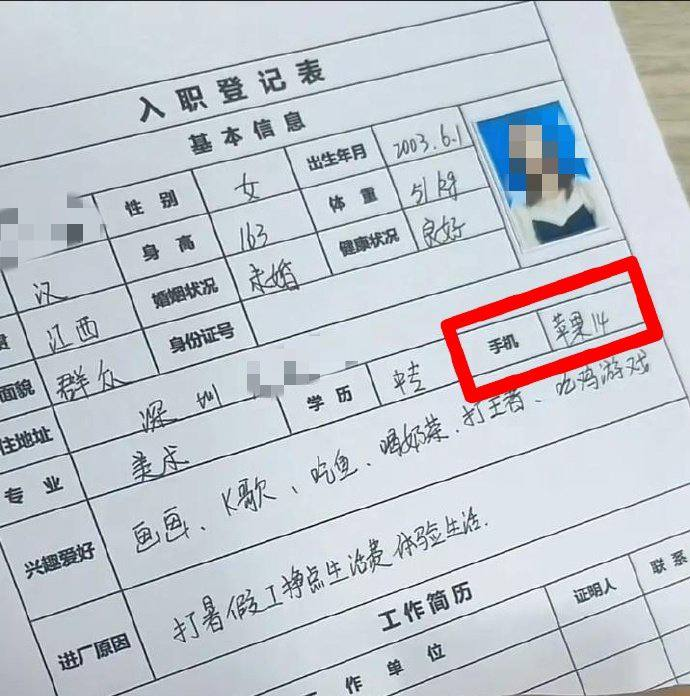 入职登记表
基本信息
性别 女 出生年月 2003.6.1
身高 163 体重 51kg
汉 婚姻状况 未婚 健康状况 良好
江西 身份证号
面貌 群众 学历 中专 手机 苹果14
住地址 深圳
专业 美术
兴趣爱好 画画、K歌、吃鱼、喝奶茶、打王者、吃鸡游戏
进厂原因 打暑假工挣点生活费体验生活.
工作简历
工作单位 证明人 联系